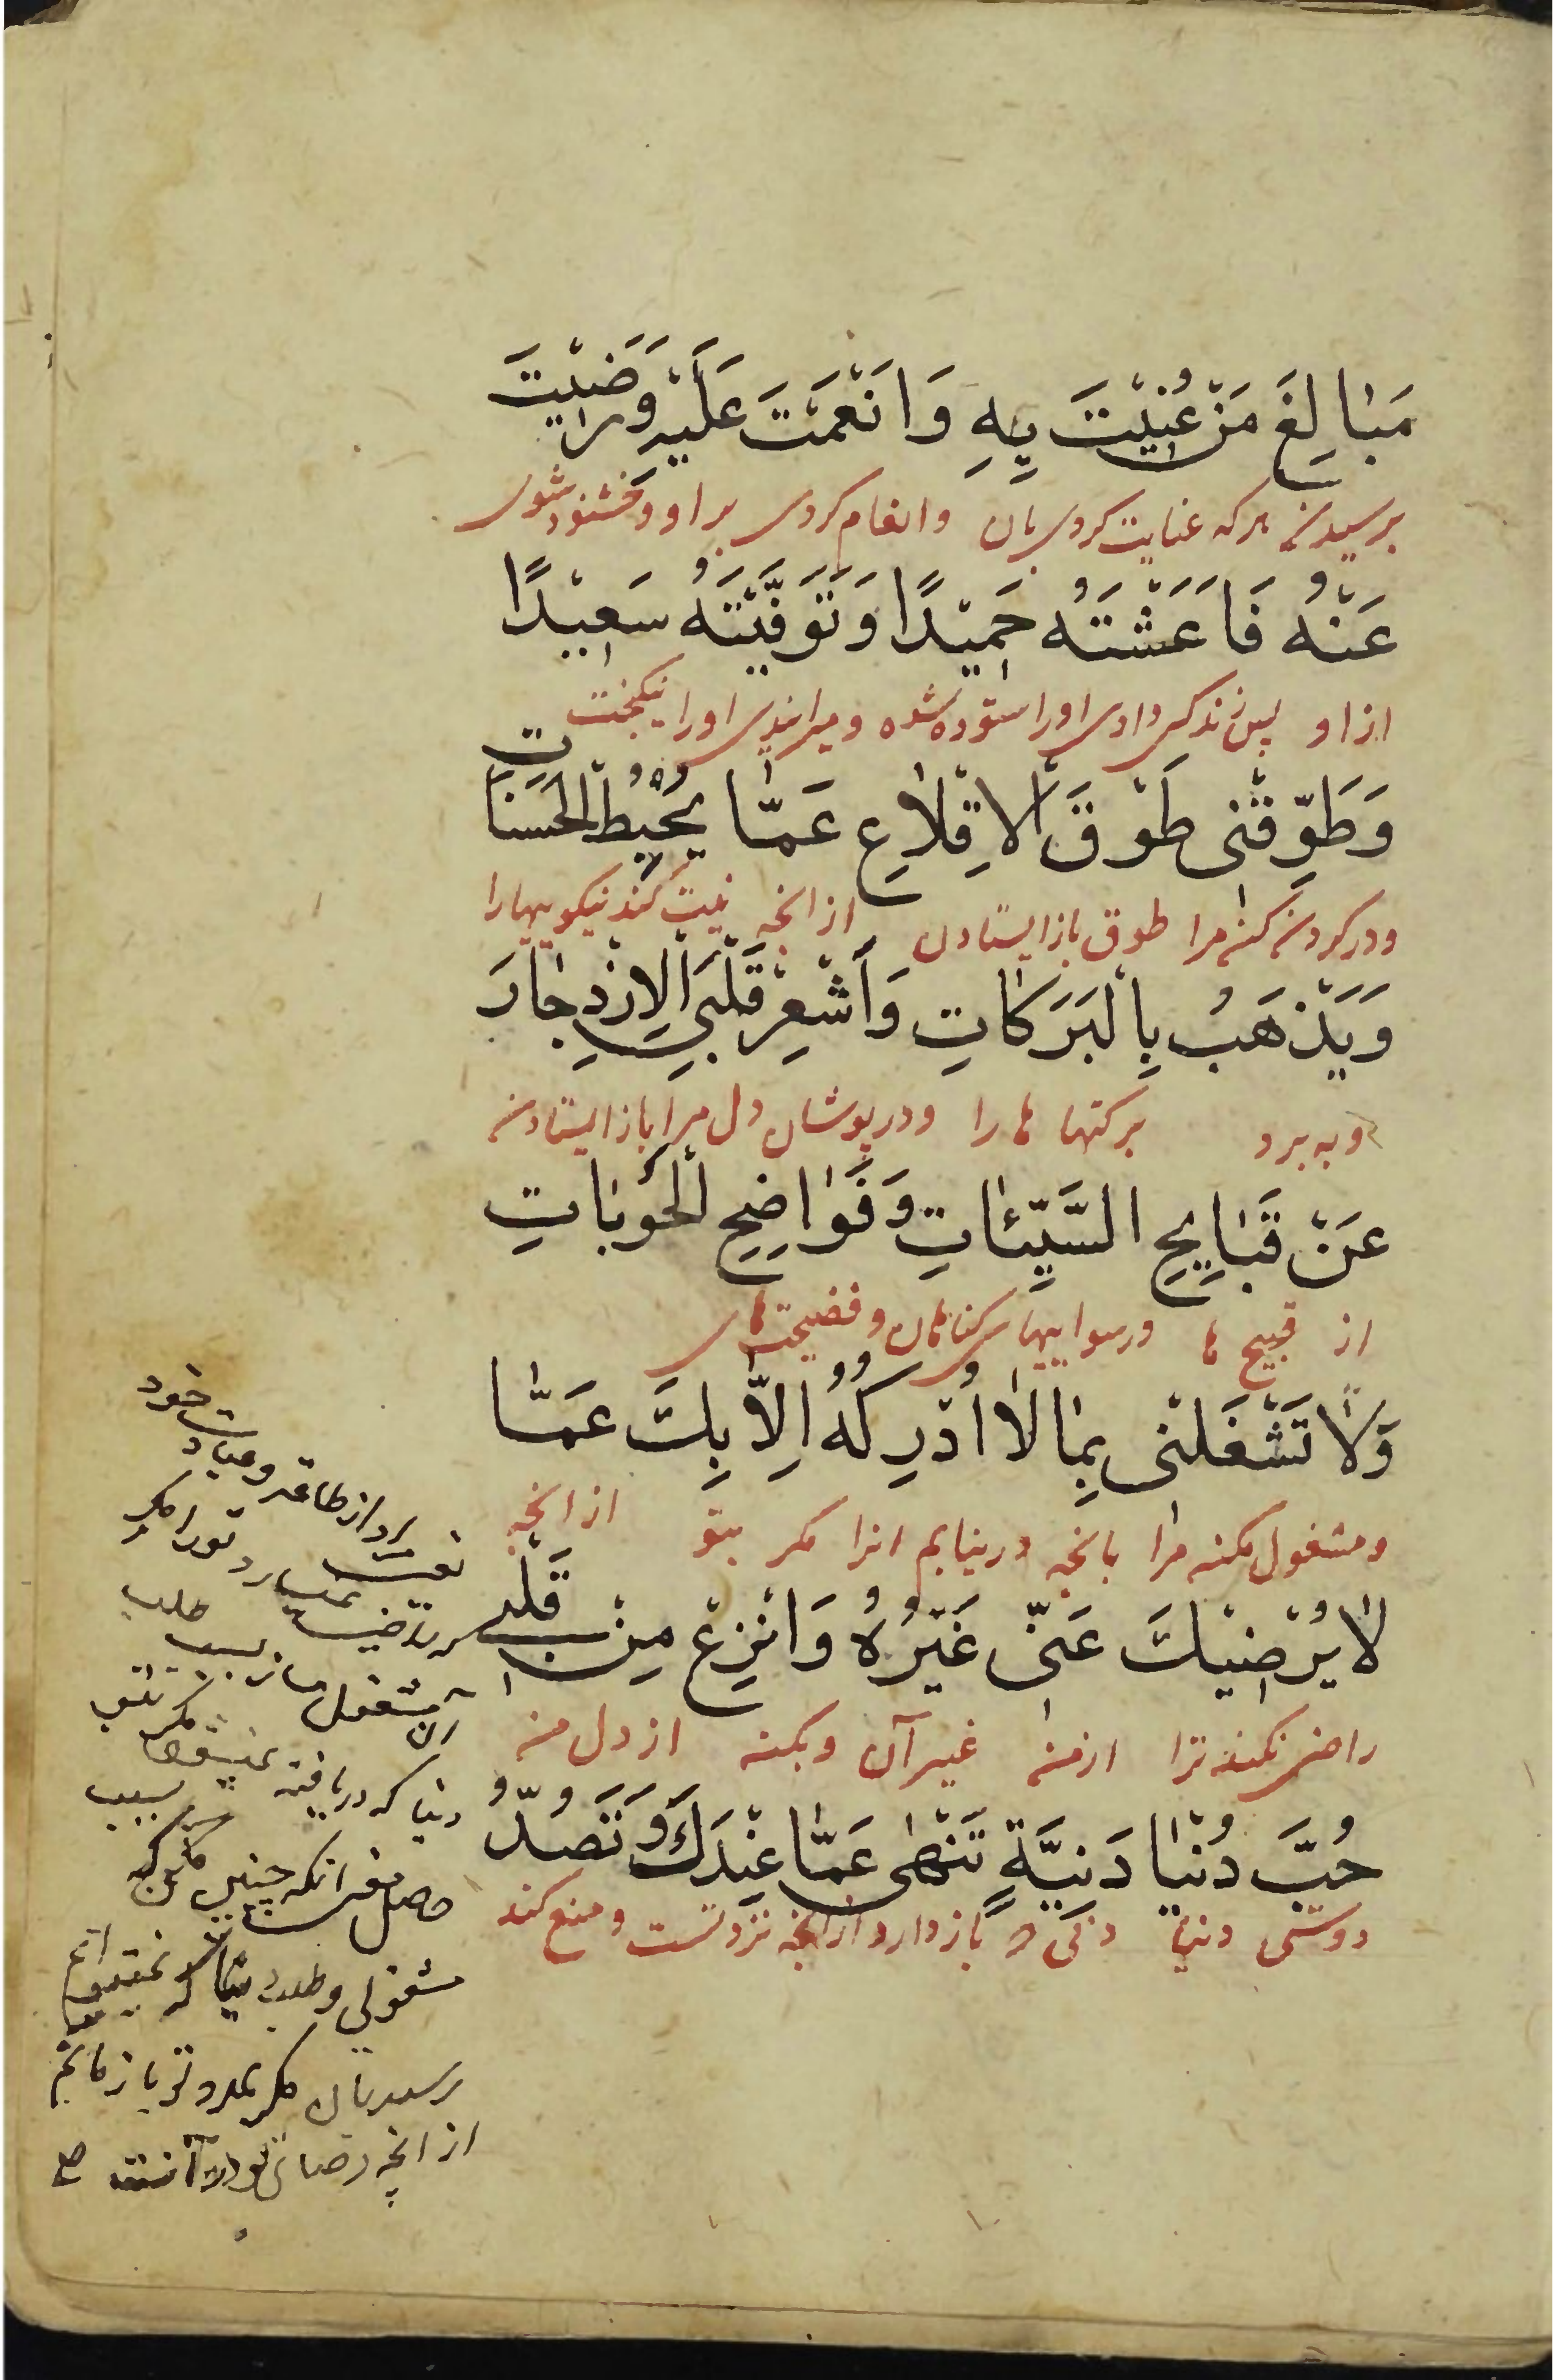 مَبٰالِغَ مَنْ عُنِيْتَ بِهِ وَاَنْعَمْتَ عَلَيْهِ وَرَضِيْتَ
برسیدن هر که عنایت کردی بان وانعام کردی بر او وخشنود شوی
عَنْهُ فَاَعَشْتَهُ حَمِيْدًا وَتَوَفَّيْتَهُ سَعِيْدًا
از او پس زندکی دادی او را ستوده شده ومیراندی او را نیکبخت
وَطَوِّقْنِى طَوْقَ الْاِقْلٰاعِ عَمّٰا يُحْبِطُ الْحَسَنٰاتِ
ودر کردن کن مرا طوق باز ایستادن از انچه نیست کند نیکوییها را
وَيَذْهَبُ بِالْبَرَكٰاتِ وَأَشْعِرْ قَلْبِىَ الْاِزْدِجٰارَ
وبه برد برکتها ها را ودر پوشان دل مرا باز ایستادن
عَنْ قَبٰايِحِ السَّيِّئٰاتِ وَفَوٰاضِحِ الْحَوْبٰاتِ
از قبیح ها ورسواییهای کناهان وفضیحتهای
وَلٰا تَشْغَلْنِى بِمٰا لٰا اُدْرِكُهُ اِلّٰا بِكَ عَمّٰا
ومشغول مکن مرا بانچه درنیابم انرا مکر بتو از انچه
لٰا يُرْضِيْكَ عَنِّى غَيْرُهُ وَانْزِعْ مِنْ قَلْبِى
راضی نکند ترا از من غیر آن وبکن از دل من
حُبَّ دُنْيٰا دَنِيَّةٍ تَنْهٰى عَمّٰا عِنْدَكَ وَتَصُدُّ
دوستی دنیا دنی که باز دارد از انچه نزد تست ومنع کند
از طاعه وعبادت خود
تو را مکر
آن مشغول مساز بسبب طلب
دنیا که دریافته نمیشود مکر بتو
حاصل معنی انکه چنین مکن که بسبب
مشغولی وطلب دنیا که نمیتوانم
رسید بان مکر بمدد تو باز مانم
از انچه رضای تو در آنست